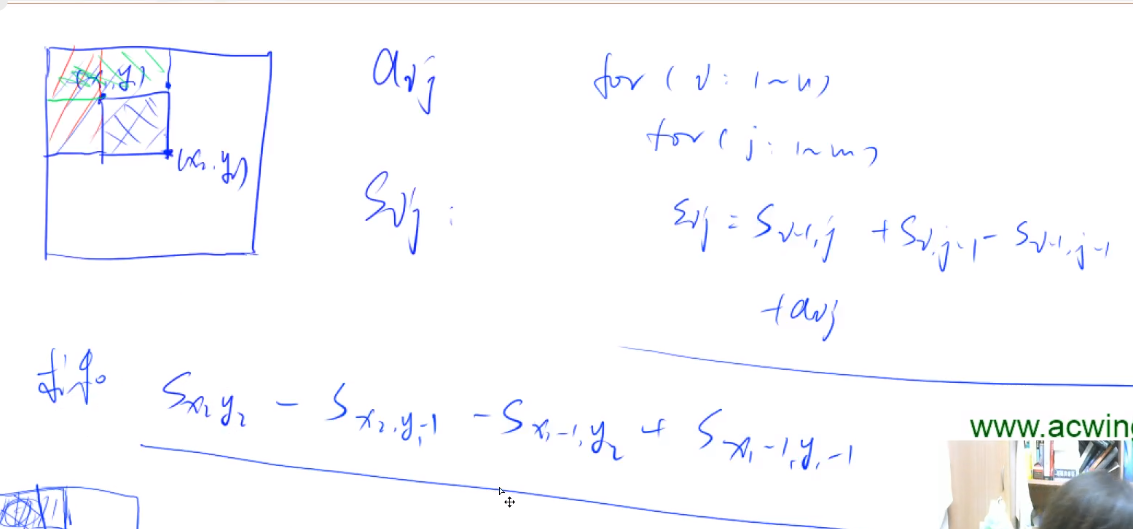 (x₁, y₁)
(x₂, y₂)
aᵢⱼ
Sᵢⱼ :
for ( i : 1~n )
for ( j : 1~m )
Sᵢⱼ = Sᵢ₋₁,ⱼ + Sᵢ,ⱼ₋₁ - Sᵢ₋₁,ⱼ₋₁
+ aᵢⱼ
Sx₂y₂ - Sx₂,y₁-1 - Sx₁-1,y₂ + Sx₁-1,y₁-1
www.acwing